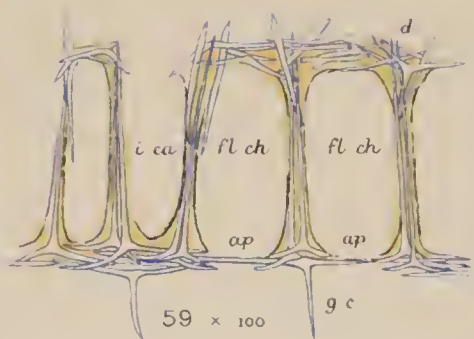 d
i ca fl ch fl ch
ap ap
g c
59 × 100